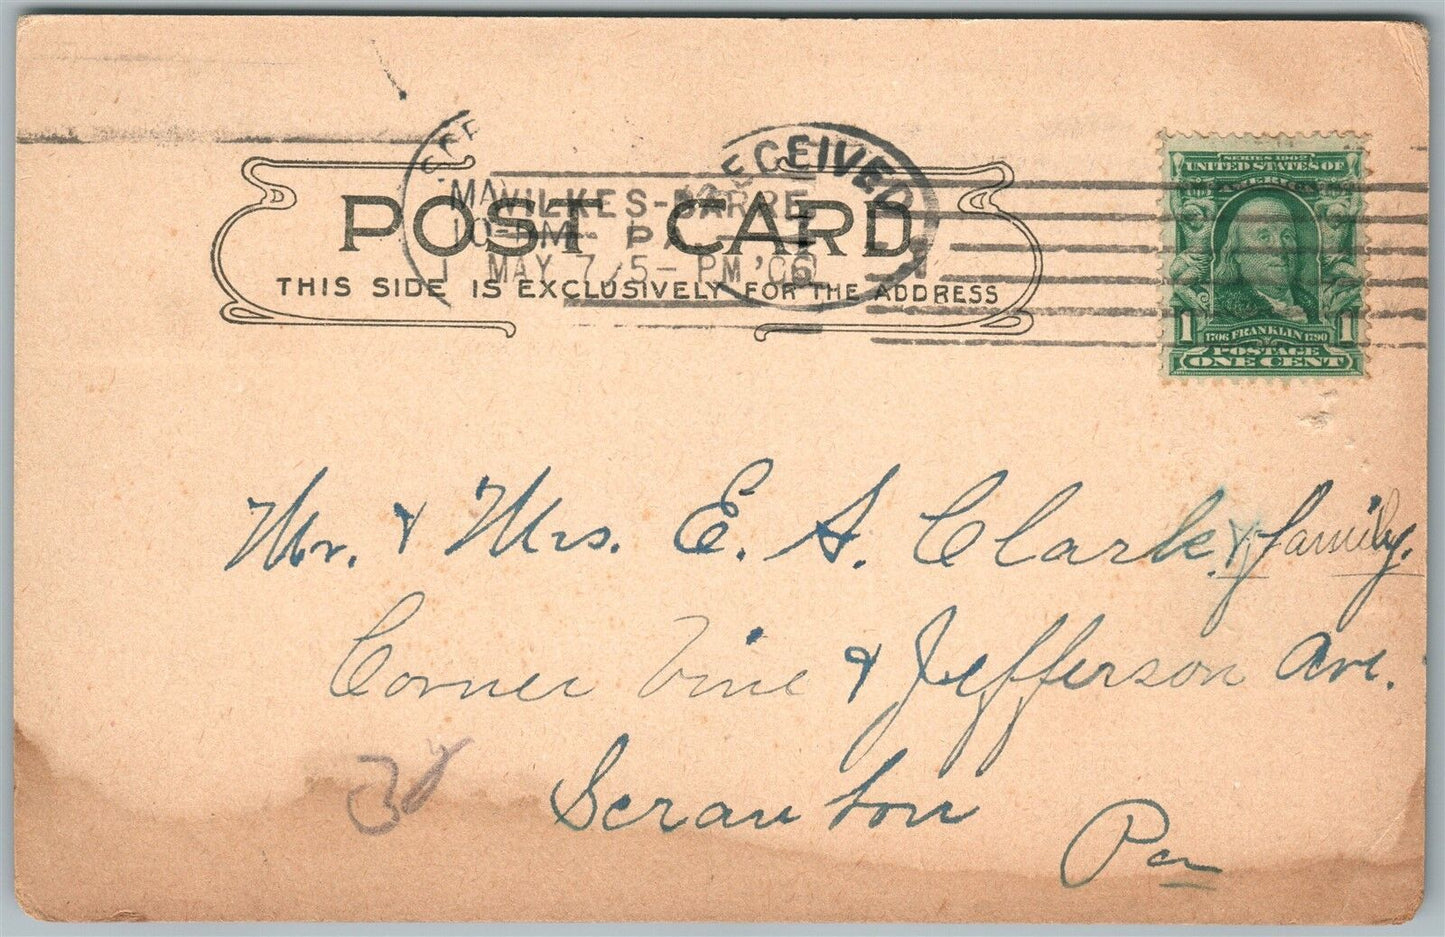 RECEIVED
WILKES-BARRE
PA
MAY 7 5-PM '06
POST CARD
THIS SIDE IS EXCLUSIVELY FOR THE ADDRESS
SERIES 1902
UNITED STATES OF
AMERICA
1 1706 FRANKLIN 1790 1
POSTAGE
ONE CENT
Mr. & Mrs. E. S. Clark. & family.
Corner Vine & Jefferson Ave.
Scranton
Pa